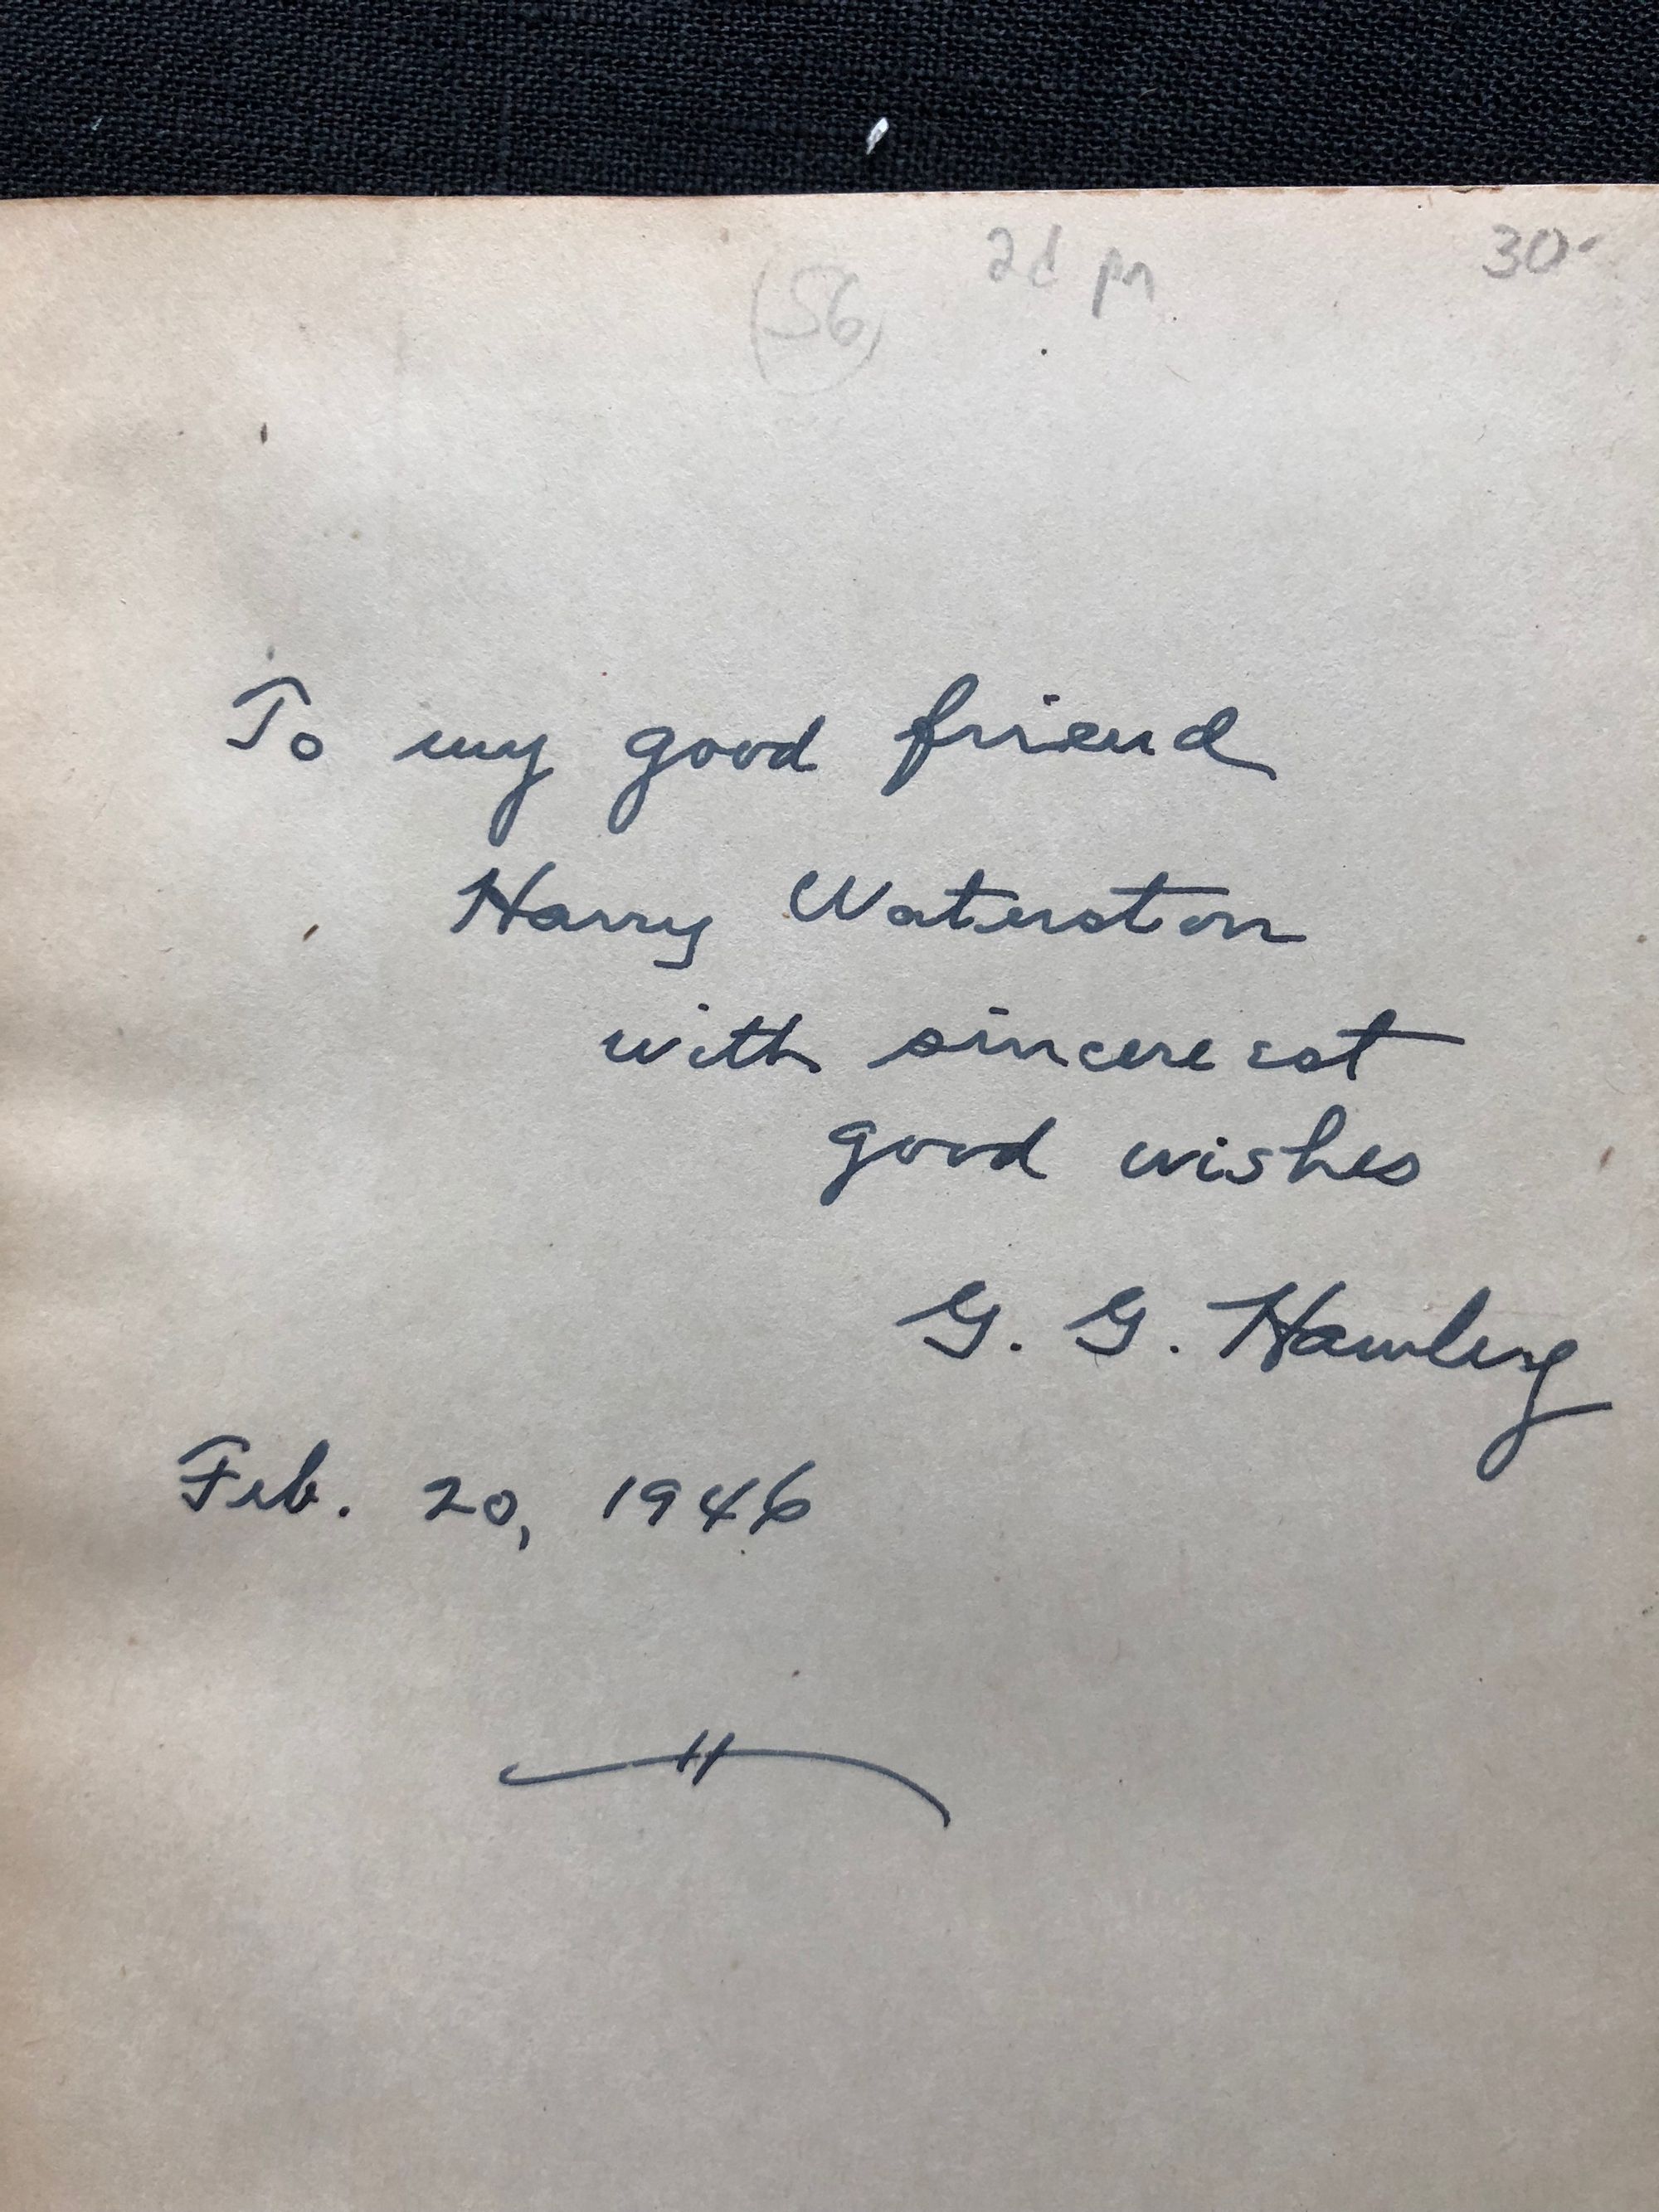 (56)
2d pn
30-
To my good friend
Harry Waterston
with sincerest
good wishes
G. G. Hawley
Feb. 20, 1946